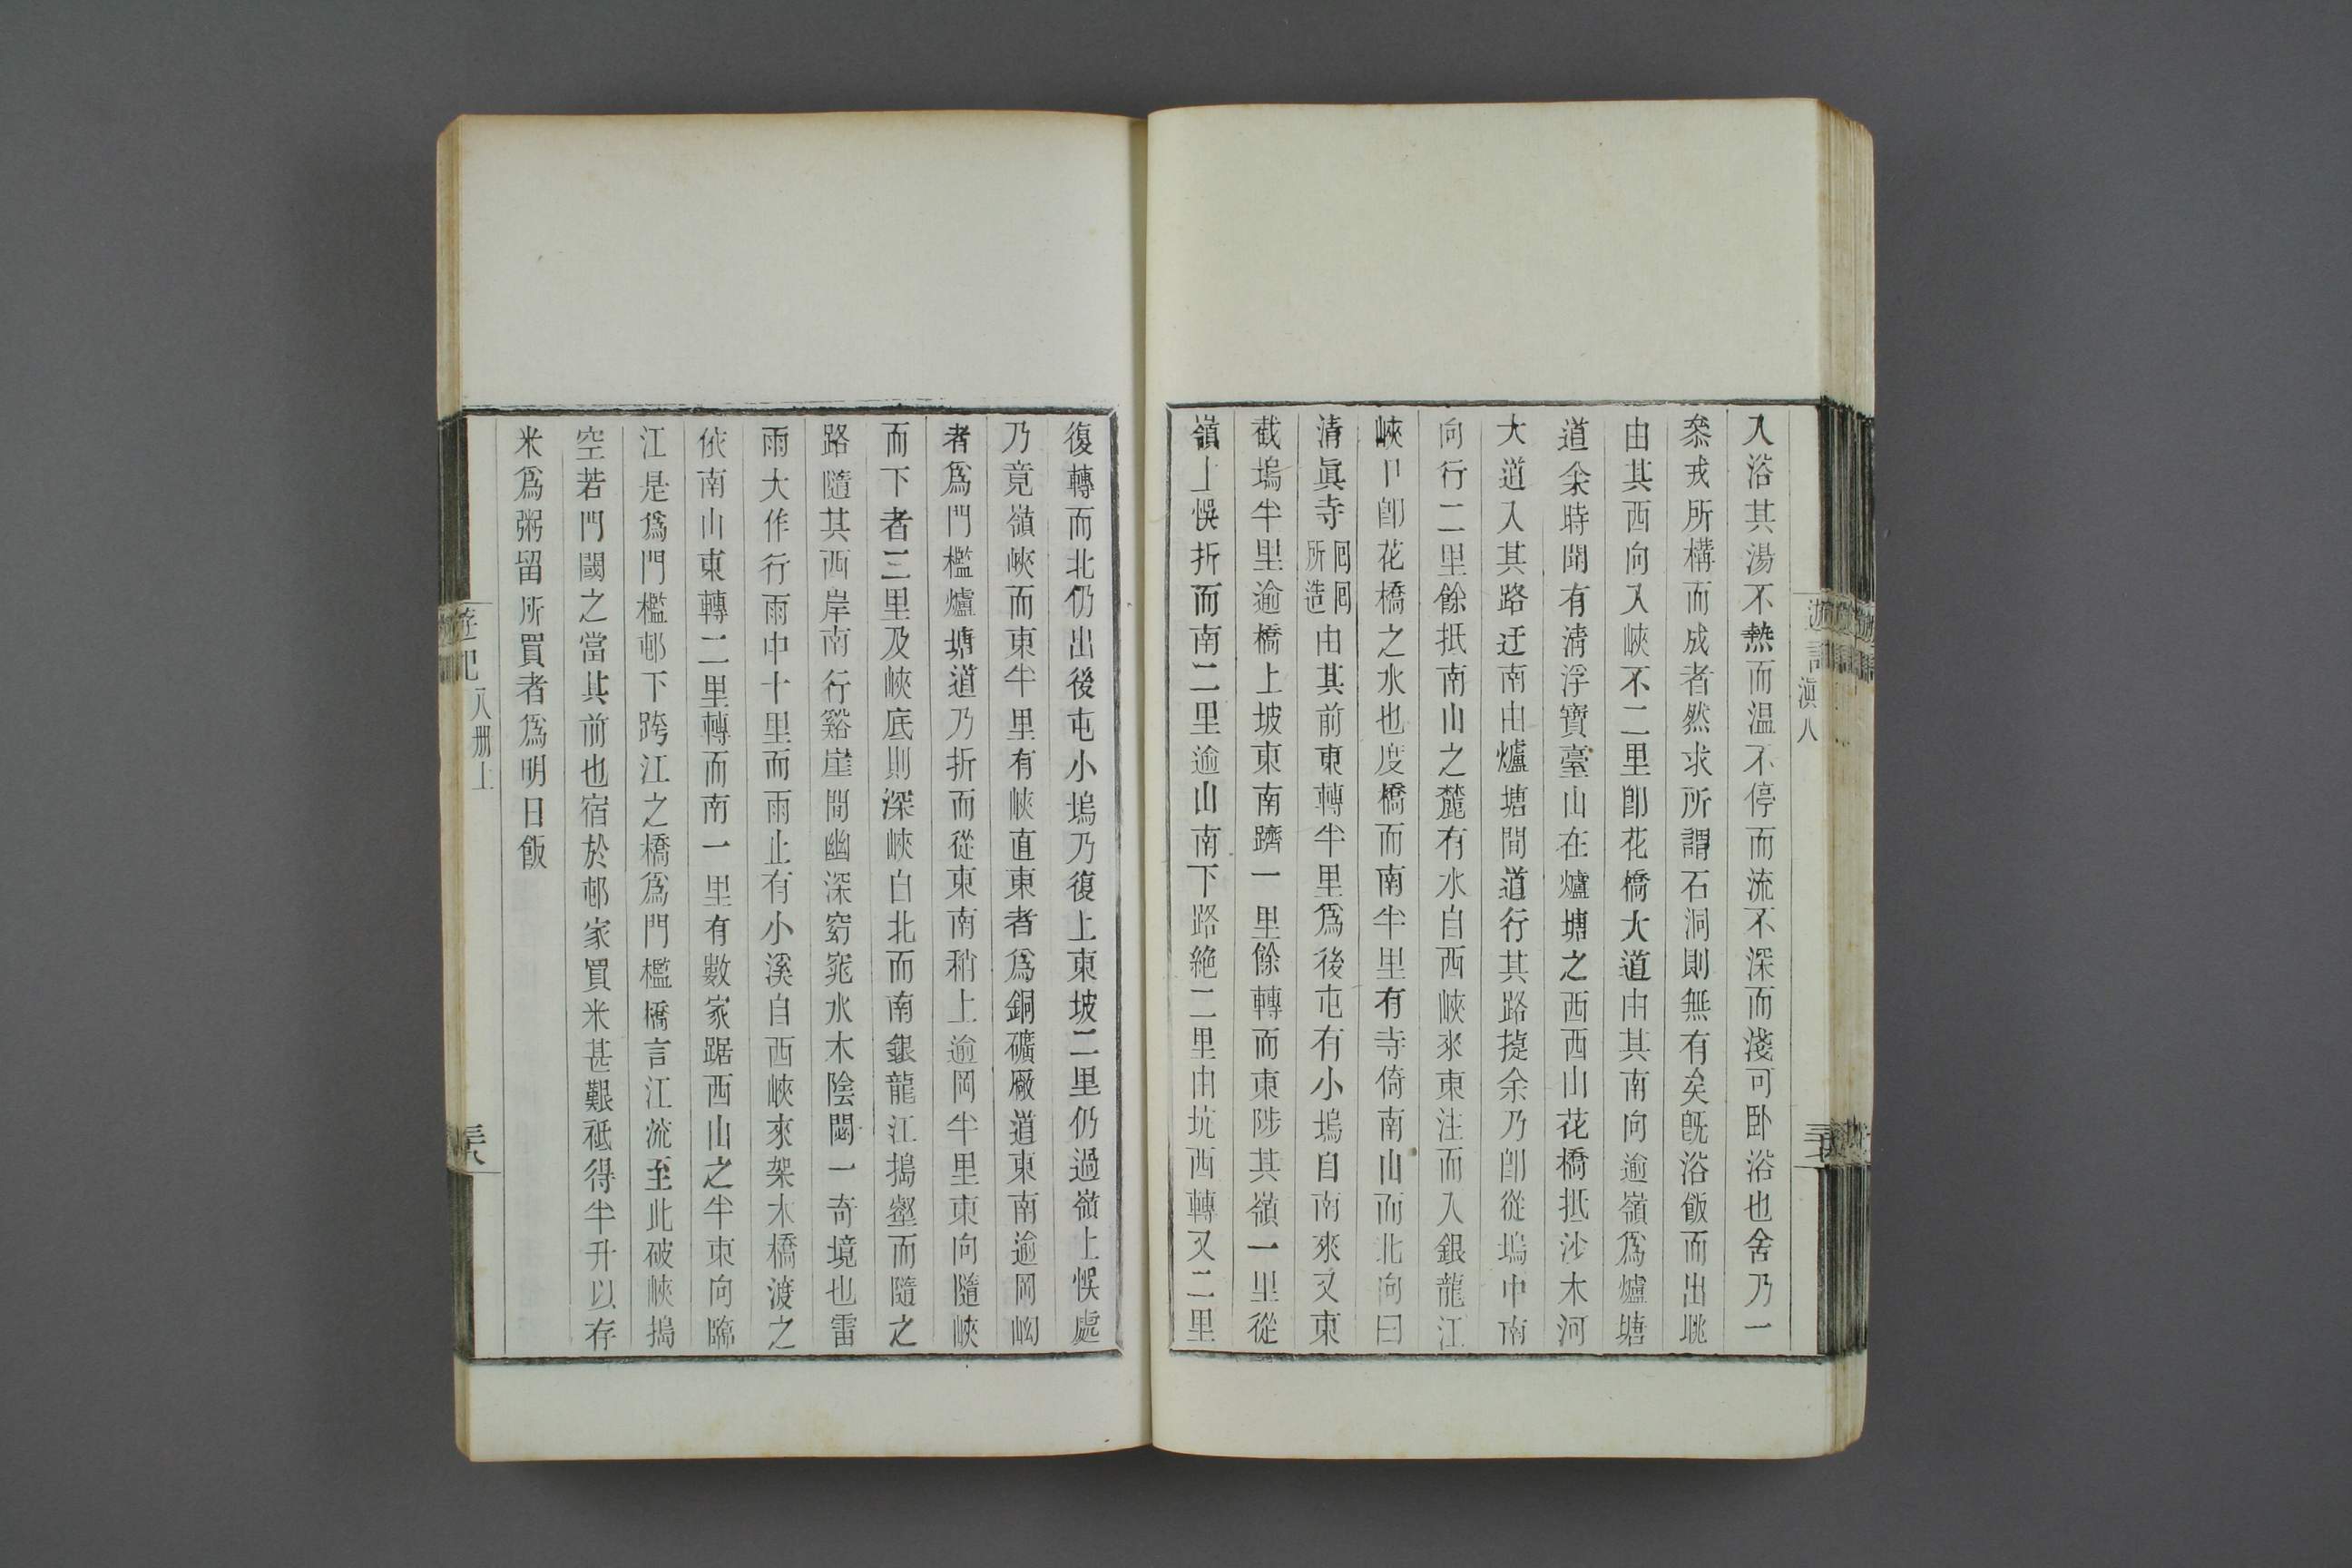 遊記
滇八
入浴其湯不熱而温不停而流不深而淺可卧浴也舍乃一
叅戎所構而成者然求所謂石洞則無有矣旣浴飯而出眺
由其西向入峽不二里卽花橋大道由其南向逾嶺爲爐塘
道余時聞有清浮寶臺山在爐塘之西西山花橋抵沙木河
大道入其路迂南由爐塘間道行其路㨗余乃卽從塢中南
向行二里餘抵南山之麓有水自西峽來東注而入銀龍江
峽卩卽花橋之水也度橋而南半里有寺倚南山而北向曰
清眞寺回回所造由其前東轉半里爲後屯有小塢自南來又東
截塢半里逾橋上坡東南躋一里餘轉而東陟其嶺一里從
嶺上悞折而南二里逾山南下路絶二里由坑西轉又二里
復轉而北仍出後屯小塢乃復上東坡二里仍過嶺上悞處
乃竟嶺峽而東半里有峽直東者爲銅礦厰道東南逾岡㘭
者爲門檻爐塘道乃折而從東南稍上逾岡半里東向隨峽
而下者三里及峽底則深峽自北而南銀龍江搗壑而隨之
路隨其西岸南行谿崖間幽深窈窕水木陰閟一奇境也雷
雨大作行雨中十里而雨止有小溪自西峽來架木橋渡之
依南山東轉二里轉而南一里有數家踞西山之半東向臨
江是爲門檻邨下跨江之橋爲門檻橋言江流至此破峽搗
空若門閾之當其前也宿於邨家買米甚艱祗得半升以存
米爲粥留所買者爲明日飯
遊記
八册上
三六